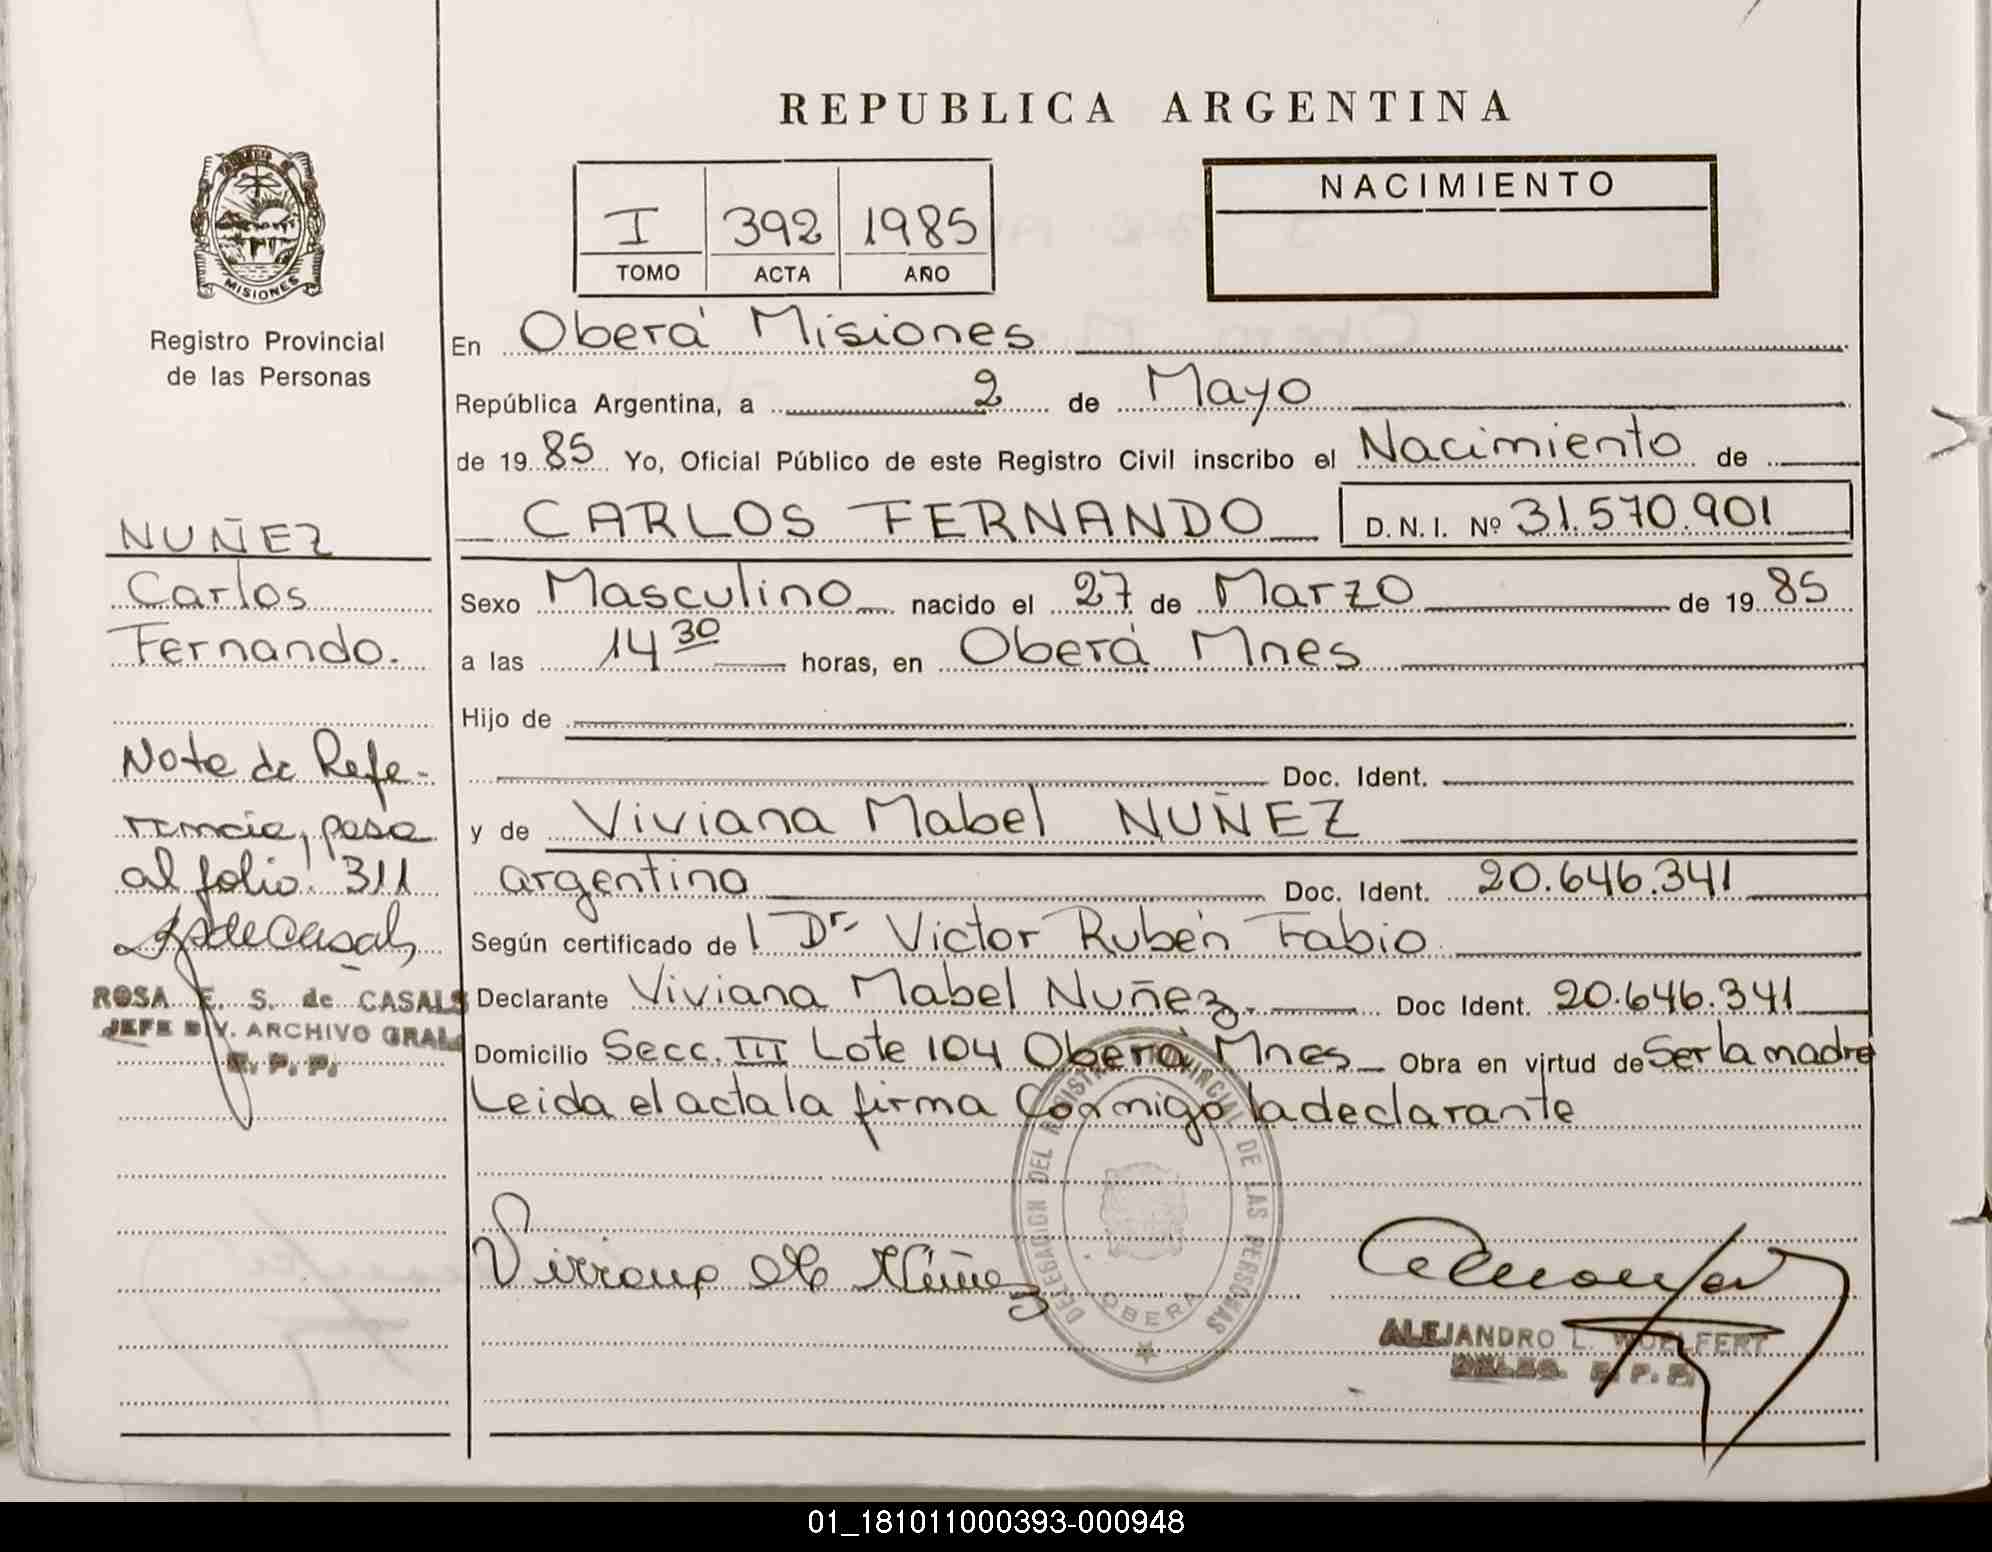 REPUBLICA ARGENTINA
MISIONES
Registro Provincial
de las Personas
I 392 1985
TOMO ACTA AÑO
NACIMIENTO
En Oberá Misiones
República Argentina, a 2 de Mayo
de 1985 Yo, Oficial Público de este Registro Civil inscribo el Nacimiento de
CARLOS FERNANDO D. N. I. Nº 31.570.901
Sexo Masculino nacido el 27 de Marzo de 1985
a las 14 30 horas, en Oberá Mnes
Hijo de
Doc. Ident.
y de Viviana Mabel NUÑEZ
argentina Doc. Ident. 20.646.341
Según certificado del Dr Victor Rubén Fabio
Declarante Viviana Mabel Nuñez. Doc Ident. 20.646.341
Domicilio Secc. III Lote 104 Oberá Mnes Obra en virtud de Ser la madre
Leida el acta la firma Conmigo la declarante
NUÑEZ
Carlos
Fernando.
Nota de Refe-
rencia, pasa
al folio: 311
ROSA E. S. de CASALS
JEFE DIV. ARCHIVO GRAL.
R. P. P.
Viviana M Núñez
DELEGACION DEL REGISTRO PROVINCIAL DE LAS PERSONAS
OBERA
ALEJANDRO L. WOELFERT
DELEG. R. P. P.
01_181011000393-000948